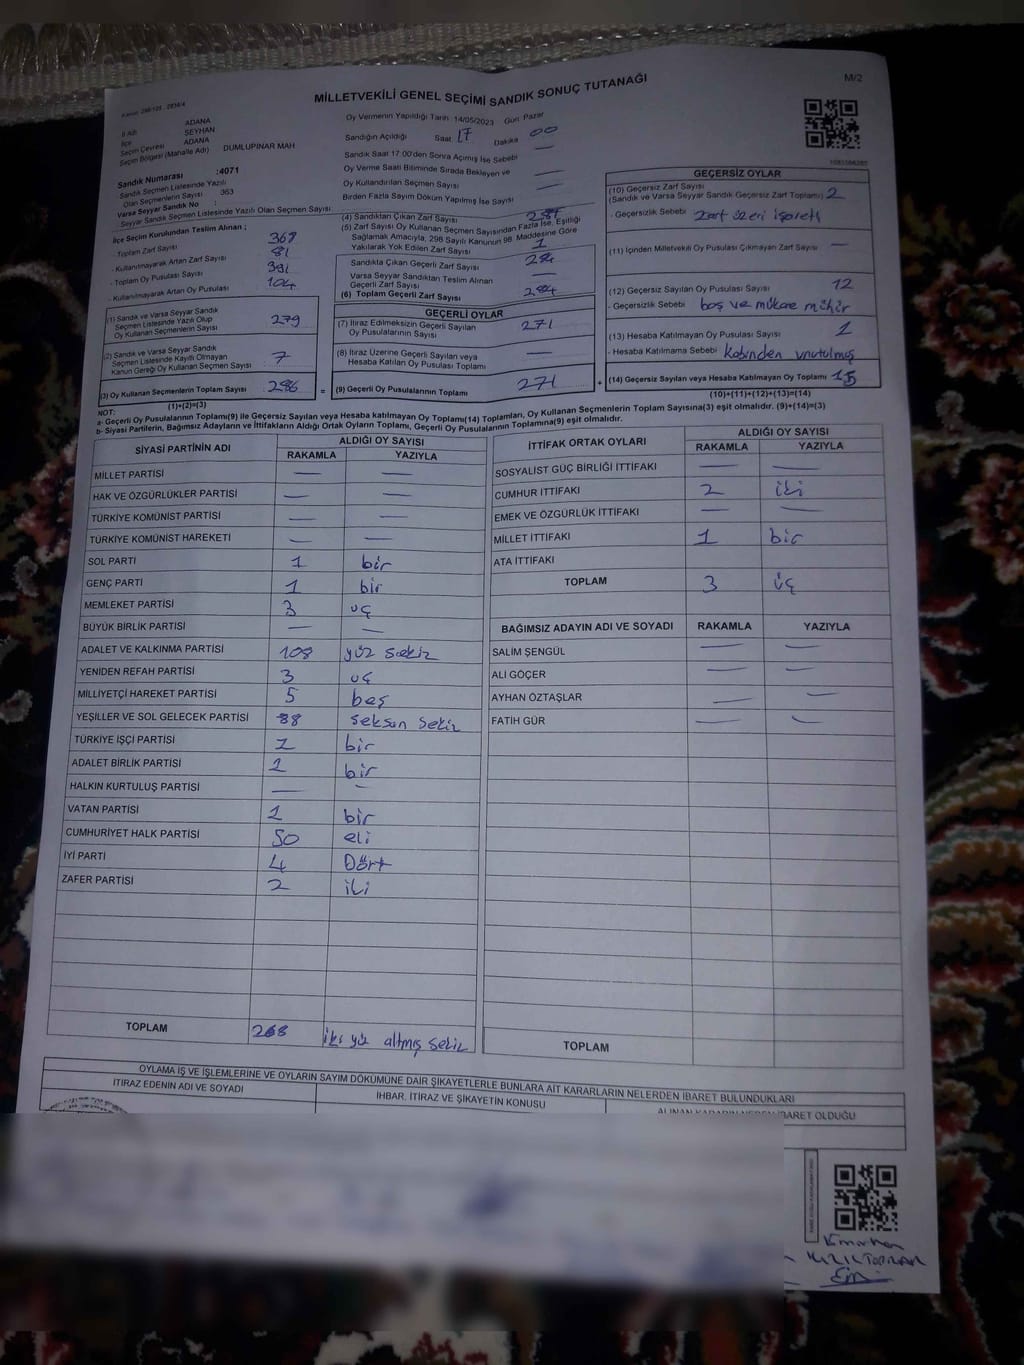 M/2
MİLLETVEKİLİ GENEL SEÇİMİ SANDIK SONUÇ TUTANAĞI
İl Adı ADANA
İlçe SEYHAN
Seçim Çevresi ADANA
Seçim Bölgesi (Mahalle Adı) DUMLUPINAR MAH
Sandık Numarası :4071
Sandık Seçmen Listesinde Yazılı
Olan Seçmenlerin Sayısı : 363
Varsa Seyyar Sandık No :
Seyyar Sandık Seçmen Listesinde Yazılı Olan Seçmen Sayısı :
Oy Vermenin Yapıldığı Tarih 14/05/2023 Gün Pazar
Sandığın Açıldığı Saat 17 Dakika 00
Sandık Saat 17:00'den Sonra Açımış İse Sebebi —
Oy Verme Saati Bitiminde Sırada Bekleyen ve
Oy Kullandırılan Seçmen Sayısı —
Birden Fazla Sayım Döküm Yapılmış İse Sayısı —
İlçe Seçim Kurulundan Teslim Alınan ;
Toplam Zarf Sayısı 367
- Kullanılmayarak Artan Zarf Sayısı 81
- Toplam Oy Pusulası Sayısı
- Kullanılmayarak Artan Oy Pusulası 104
(1) Sandık ve Varsa Seyyar Sandık
Seçmen Listesinde Yazılı Olup
Oy Kullanan Seçmenlerin Sayısı 279
(2) Sandık ve Varsa Seyyar Sandık
Seçmen Listesinde Kayıtlı Olmayan
Kanun Gereği Oy Kullanan Seçmen Sayısı 7
(3) Oy Kullanan Seçmenlerin Toplam Sayısı 286 =
(1)+(2)=(3)
(4) Sandıktan Çıkan Zarf Sayısı
(5) Zarf Sayısı Oy Kullanan Seçmen Sayısından Fazla İse, Eşitliği
Sağlamak Amacıyla, 298 Sayılı Kanunun 98. Maddesine Göre
Yakılarak Yok Edilen Zarf Sayısı 1
Sandıkta Çıkan Geçerli Zarf Sayısı 284
Varsa Seyyar Sandıktan Teslim Alınan
Geçerli Zarf Sayısı —
(6) Toplam Geçerli Zarf Sayısı 284
GEÇERLİ OYLAR
(7) İtiraz Edilmeksizin Geçerli Sayılan
Oy Pusulalarının Sayısı 271
(8) İtiraz Üzerine Geçerli Sayılan veya
Hesaba Katılan Oy Pusulası Toplamı —
(9) Geçerli Oy Pusulalarının Toplamı 271 +
GEÇERSİZ OYLAR
(10) Geçersiz Zarf Sayısı
(Sandık ve Varsa Seyyar Sandık Geçersiz Zarf Toplamı) 2
- Geçersizlik Sebebi Zarf üzeri işaretli
(11) İçinden Milletvekili Oy Pusulası Çıkmayan Zarf Sayısı —
(12) Geçersiz Sayılan Oy Pusulası Sayısı 12
- Geçersizlik Sebebi boş ve mükae mühür
(13) Hesaba Katılmayan Oy Pusulası Sayısı 1
- Hesaba Katılmama Sebebi Kabinden unutulmuş
(14) Geçersiz Sayılan veya Hesaba Katılmayan Oy Toplamı 15
(10)+(11)+(12)+(13)=(14)
NOT:
a- Geçerli Oy Pusulalarının Toplamı(9) ile Geçersiz Sayılan veya Hesaba katılmayan Oy Toplamı(14) Toplamları, Oy Kullanan Seçmenlerin Toplam Sayısına(3) eşit olmalıdır. (9)+(14)=(3)
b- Siyasi Partilerin, Bağımsız Adayların ve İttifakların Aldığı Ortak Oyların Toplamı, Geçerli Oy Pusulalarının Toplamına(9) eşit olmalıdır.
SİYASİ PARTİNİN ADI ALDIĞI OY SAYISI
RAKAMLA YAZIYLA
MİLLET PARTİSİ — —
HAK VE ÖZGÜRLÜKLER PARTİSİ — —
TÜRKİYE KOMÜNİST PARTİSİ — —
TÜRKİYE KOMÜNİST HAREKETİ — —
SOL PARTİ 1 bir
GENÇ PARTİ 1 bir
MEMLEKET PARTİSİ 3 üç
BÜYÜK BİRLİK PARTİSİ — —
ADALET VE KALKINMA PARTİSİ 108 yüz sekiz
YENİDEN REFAH PARTİSİ 3 üç
MİLLİYETÇİ HAREKET PARTİSİ 5 beş
YEŞİLLER VE SOL GELECEK PARTİSİ 88 seksen sekiz
TÜRKİYE İŞÇİ PARTİSİ 1 bir
ADALET BİRLİK PARTİSİ 1 bir
HALKIN KURTULUŞ PARTİSİ — —
VATAN PARTİSİ 1 bir
CUMHURİYET HALK PARTİSİ 50 eli
İYİ PARTİ 4 Dört
ZAFER PARTİSİ 2 iki
TOPLAM 268 iki yüz altmış sekiz
İTTİFAK ORTAK OYLARI ALDIĞI OY SAYISI
RAKAMLA YAZIYLA
SOSYALİST GÜÇ BİRLİĞİ İTTİFAKI — —
CUMHUR İTTİFAKI 2 iki
EMEK VE ÖZGÜRLÜK İTTİFAKI — —
MİLLET İTTİFAKI 1 bir
ATA İTTİFAKI
TOPLAM 3 üç
BAĞIMSIZ ADAYIN ADI VE SOYADI RAKAMLA YAZIYLA
SALİM ŞENGÜL — —
ALİ GÖÇER — —
AYHAN ÖZTAŞLAR — —
FATİH GÜR — —
TOPLAM
OYLAMA İŞ VE İŞLEMLERİNE VE OYLARIN SAYIM DÖKÜMÜNE DAİR ŞİKAYETLERLE BUNLARA AİT KARARLARIN NELERDEN İBARET BULUNDUKLARI
İTİRAZ EDENİN ADI VE SOYADI
İHBAR, İTİRAZ VE ŞİKAYETİN KONUSU
ALINAN KARARIN NEDEN İBARET OLDUĞU
KIZILTOPRAK